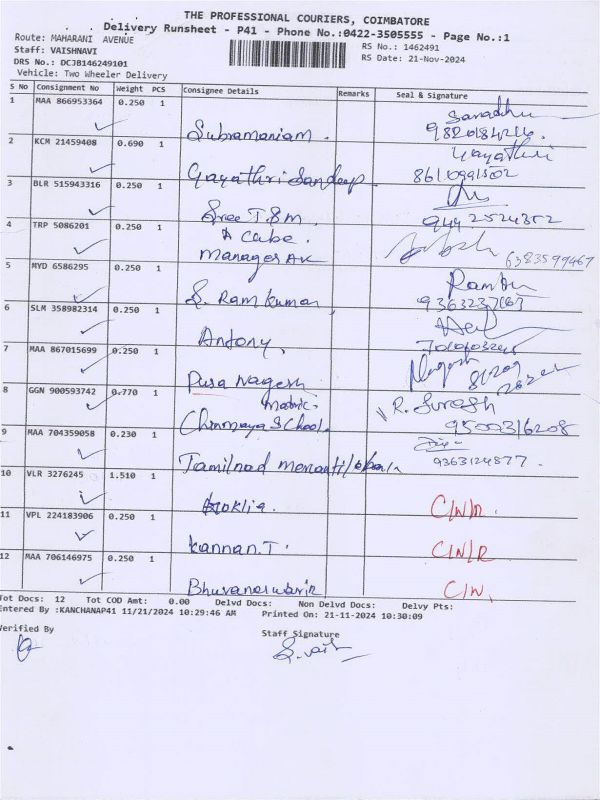 THE PROFESSIONAL COURIERS, COIMBATORE
Delivery Runsheet - P41 - Phone No.:0422-3505555 - Page No.:1
Route: MAHARANI AVENUE
RS No.: 1462491
Staff: VAISHNAVI
RS Date: 21-Nov-2024
DRS No.: DCJB146249101
Vehicle: Two Wheeler Delivery
S No Consignment No Weight PCS Consignee Details Remarks Seal & Signature
1 MAA 866953364 0.250 1 Subramaniam.
2 KCM 21459408 0.690 1 Gayathri Sandeep Gayathri
3 BLR 515943316 0.250 1 Sree T.S.M. 9442524352
4 TRP 5086201 0.250 1 Manager 6383599467
5 MYD 6586295 0.250 1 S. Ram kumar
6 SLM 358982314 0.250 1 Antony.
7 MAA 867015699 0.250 1 Pusa Nagesh Nagesh
8 GGN 900593742 0.770 1 Matric. Chinmaya School R. Suresh 9500316208
9 MAA 704359058 0.230 1 Tamilnad 9363124877.
10 VLR 3276245 1.510 1 C/N/R.
11 VPL 224183906 0.250 1 Kannan.T. C/N/R
12 MAA 706146975 0.250 1 Bhuvaneswari C/N.
Tot Docs: 12 Tot COD Amt: 0.00 Delvd Docs: Non Delvd Docs: Delvy Pts:
Entered By :KANCHANAP41 11/21/2024 10:29:46 AM Printed On: 21-11-2024 10:30:09
Verified By
Staff Signature